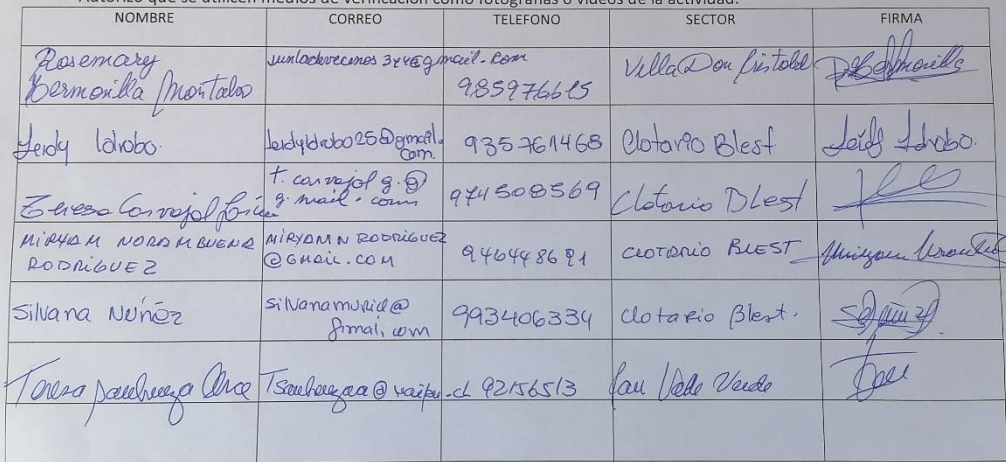 Autorizo que se utilicen medios de verificación como fotografías o videos de la actividad.
NOMBRE CORREO TELEFONO SECTOR FIRMA
Rosemary
Bermonilla Montalvo 985976615 Villa Don Cristobal
Leidy Idrobo. leidyIdrobo25@gmail.com. 935761468 Clotario Blest Leidy Idrobo.
t. carvajol g.@
Teresa Carvajol g.mail.com 974508569 Clotario Blest
MIRYAM NORAMBUENA MIRYAMNRODRIGUEZ
RODRIGUEZ @GMAIL.COM 946448691 CLOTARIO BLEST
Silvana Nuñez silvanamuric@
gimal,com 993406334 Clotario Blest.
Teresa 92156513 Verde